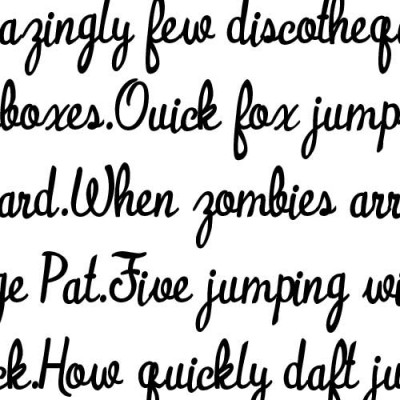 azingly few discothequ
boxes.Quick fox jump
ard.When zombies arr
ge Pat.Five jumping wi
ck.How quickly daft ju